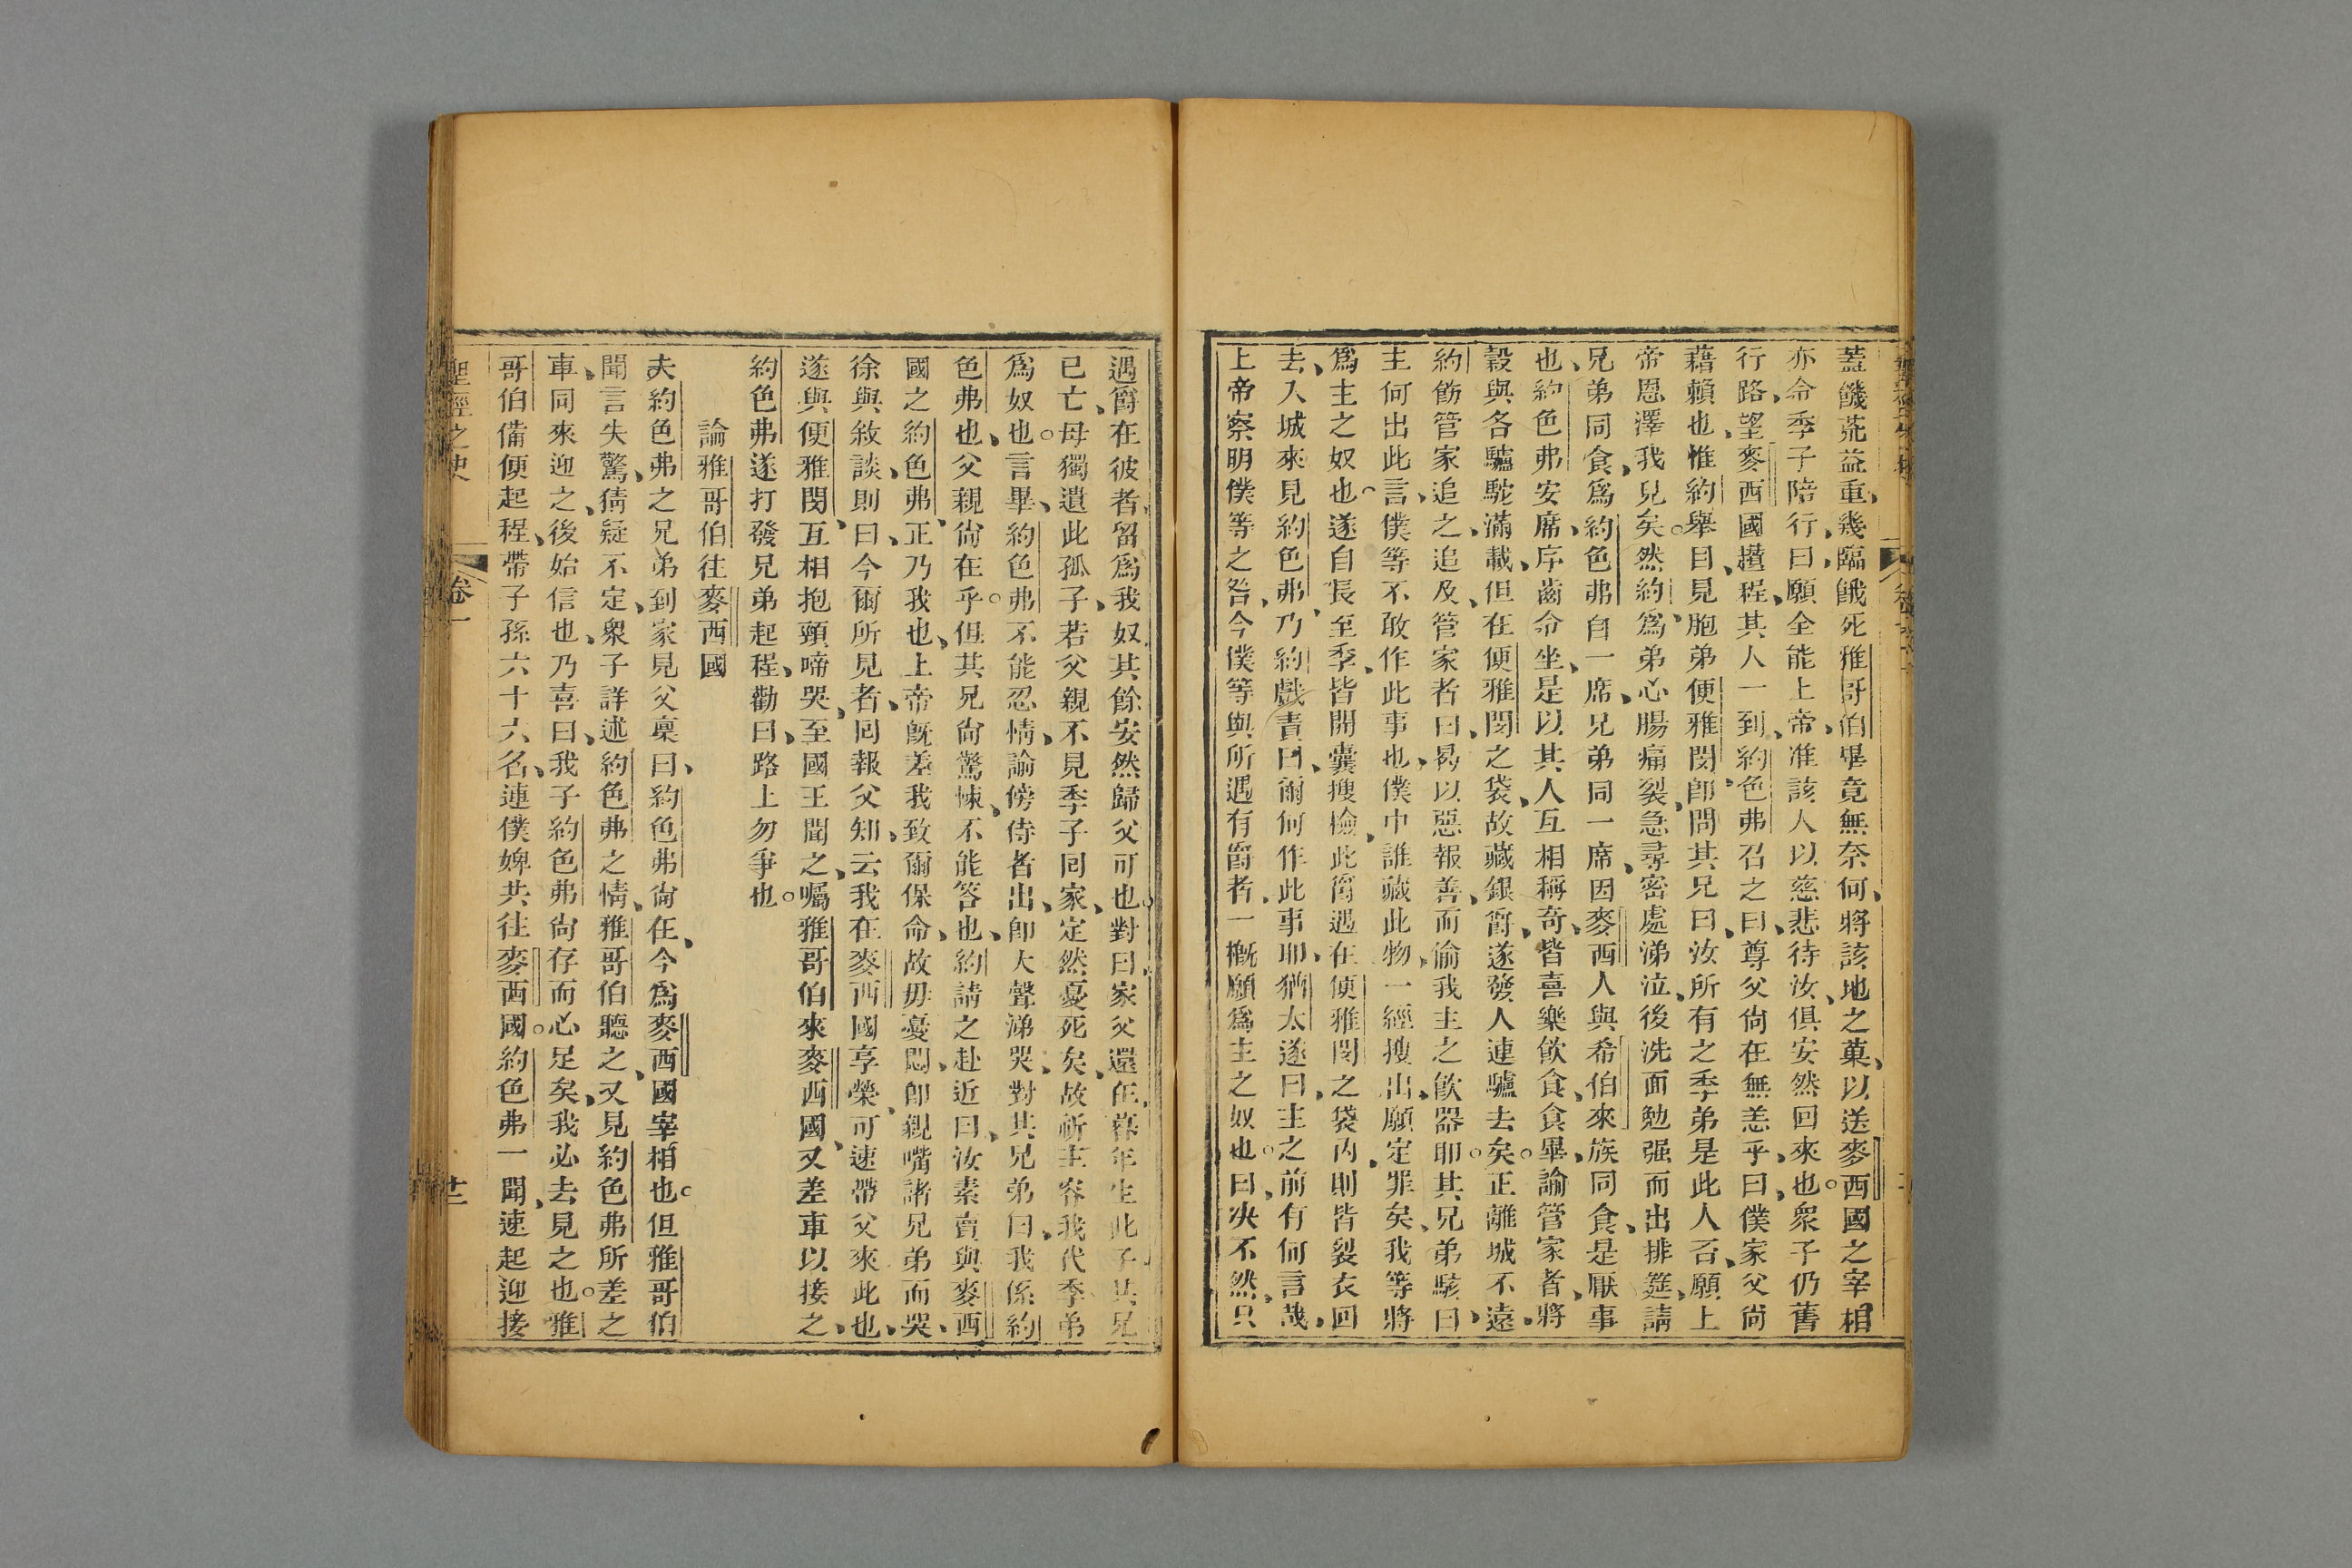 蓋饑荒益重、幾臨餓死、雅哥伯畢竟無奈何、將該地之菓、以送麥西國之宰相
亦命季子陪行、曰、願全能上帝、准該人以慈悲待汝、俱安然回來也。衆子仍舊
行路、望麥西國趲程、其人一到、約色弗召之曰、尊父尙在無恙乎、曰、僕家父尙
藉賴也、惟約舉目、見胞弟便雅閔、卽問其兄曰、汝所有之季弟是此人否、願上
帝恩澤我兒矣。然約爲弟心腸痛裂、急尋密處涕泣、後洗面勉强而出排筵、請
兄弟同食、爲約色弗自一席、兄弟同一席、因麥西人與希伯來族同食、是厭事
也、約色弗安席、序齒命坐、是以其人互相稱奇、皆喜樂飮食、食畢。論管家者、將
穀與各驢駝滿載、但在便雅閔之袋、故藏銀爵、遂發人連驢去矣。正離城不遠、
約飭管家追之、追及、管家者曰、曷以惡報善、而偷我主之飮器耶。其兄弟駭曰、
主何出此言、僕等不敢作此事也、僕中誰藏此物、一經搜出、願定罪矣、我等將
爲主之奴也。遂自長至季、皆開囊搜檢、此爵遇在便雅閔之袋內、則皆裂衣回
去、入城來見約色弗、乃約戲責曰、爾何作此事耶、猶太遂曰、主之前有何言哉、
上帝察明僕等之咎、今僕等與所遇有爵者、一槪願爲主之奴也。曰、决不然、只
遇爵在彼者、留爲我奴、其餘安然歸父可也。對曰、家父還在、暮年生此子、其兄
已亡、母獨遺此孤子、若父親不見季子同家、定然憂死矣、故祈主容我代季弟
爲奴也。言畢、約色弗不能忍情、諭傍侍者出、卽大聲涕哭、對其兄弟曰、我係約
色弗也、父親尙在乎。但其兄尙驚悚、不能答也、約請之赴近曰、汝素賣與麥西
國之約色弗、正乃我也、上帝旣差我致爾保命、故毋憂悶、卽親嘴諸兄弟而哭、
徐與敘談、則曰、今爾所見者、囘報父知、云我在麥西國享榮、可速帶父來此也、
遂與便雅閔、互相抱頸啼哭、至國王聞之、囑雅哥伯來麥西國、又差車以接之、
約色弗遂打發兄弟起程、勸曰、路上勿爭也。
論雅哥伯往麥西國
夫約色弗之兄弟到家見父稟曰、約色弗尙在、今爲麥西國宰相也。但雅哥伯
聞言失驚、猜疑不定、衆子詳述約色弗之情、雅哥伯聽之、又見約色弗所差之
車、同來迎之、後始信也、乃喜曰、我子約色弗尙存而心足矣、我必去見之也。雅
哥伯備便起程、帶子孫六十六名、連僕婢共往麥西國。約色弗一聞、速起迎接
聖經之史
卷一